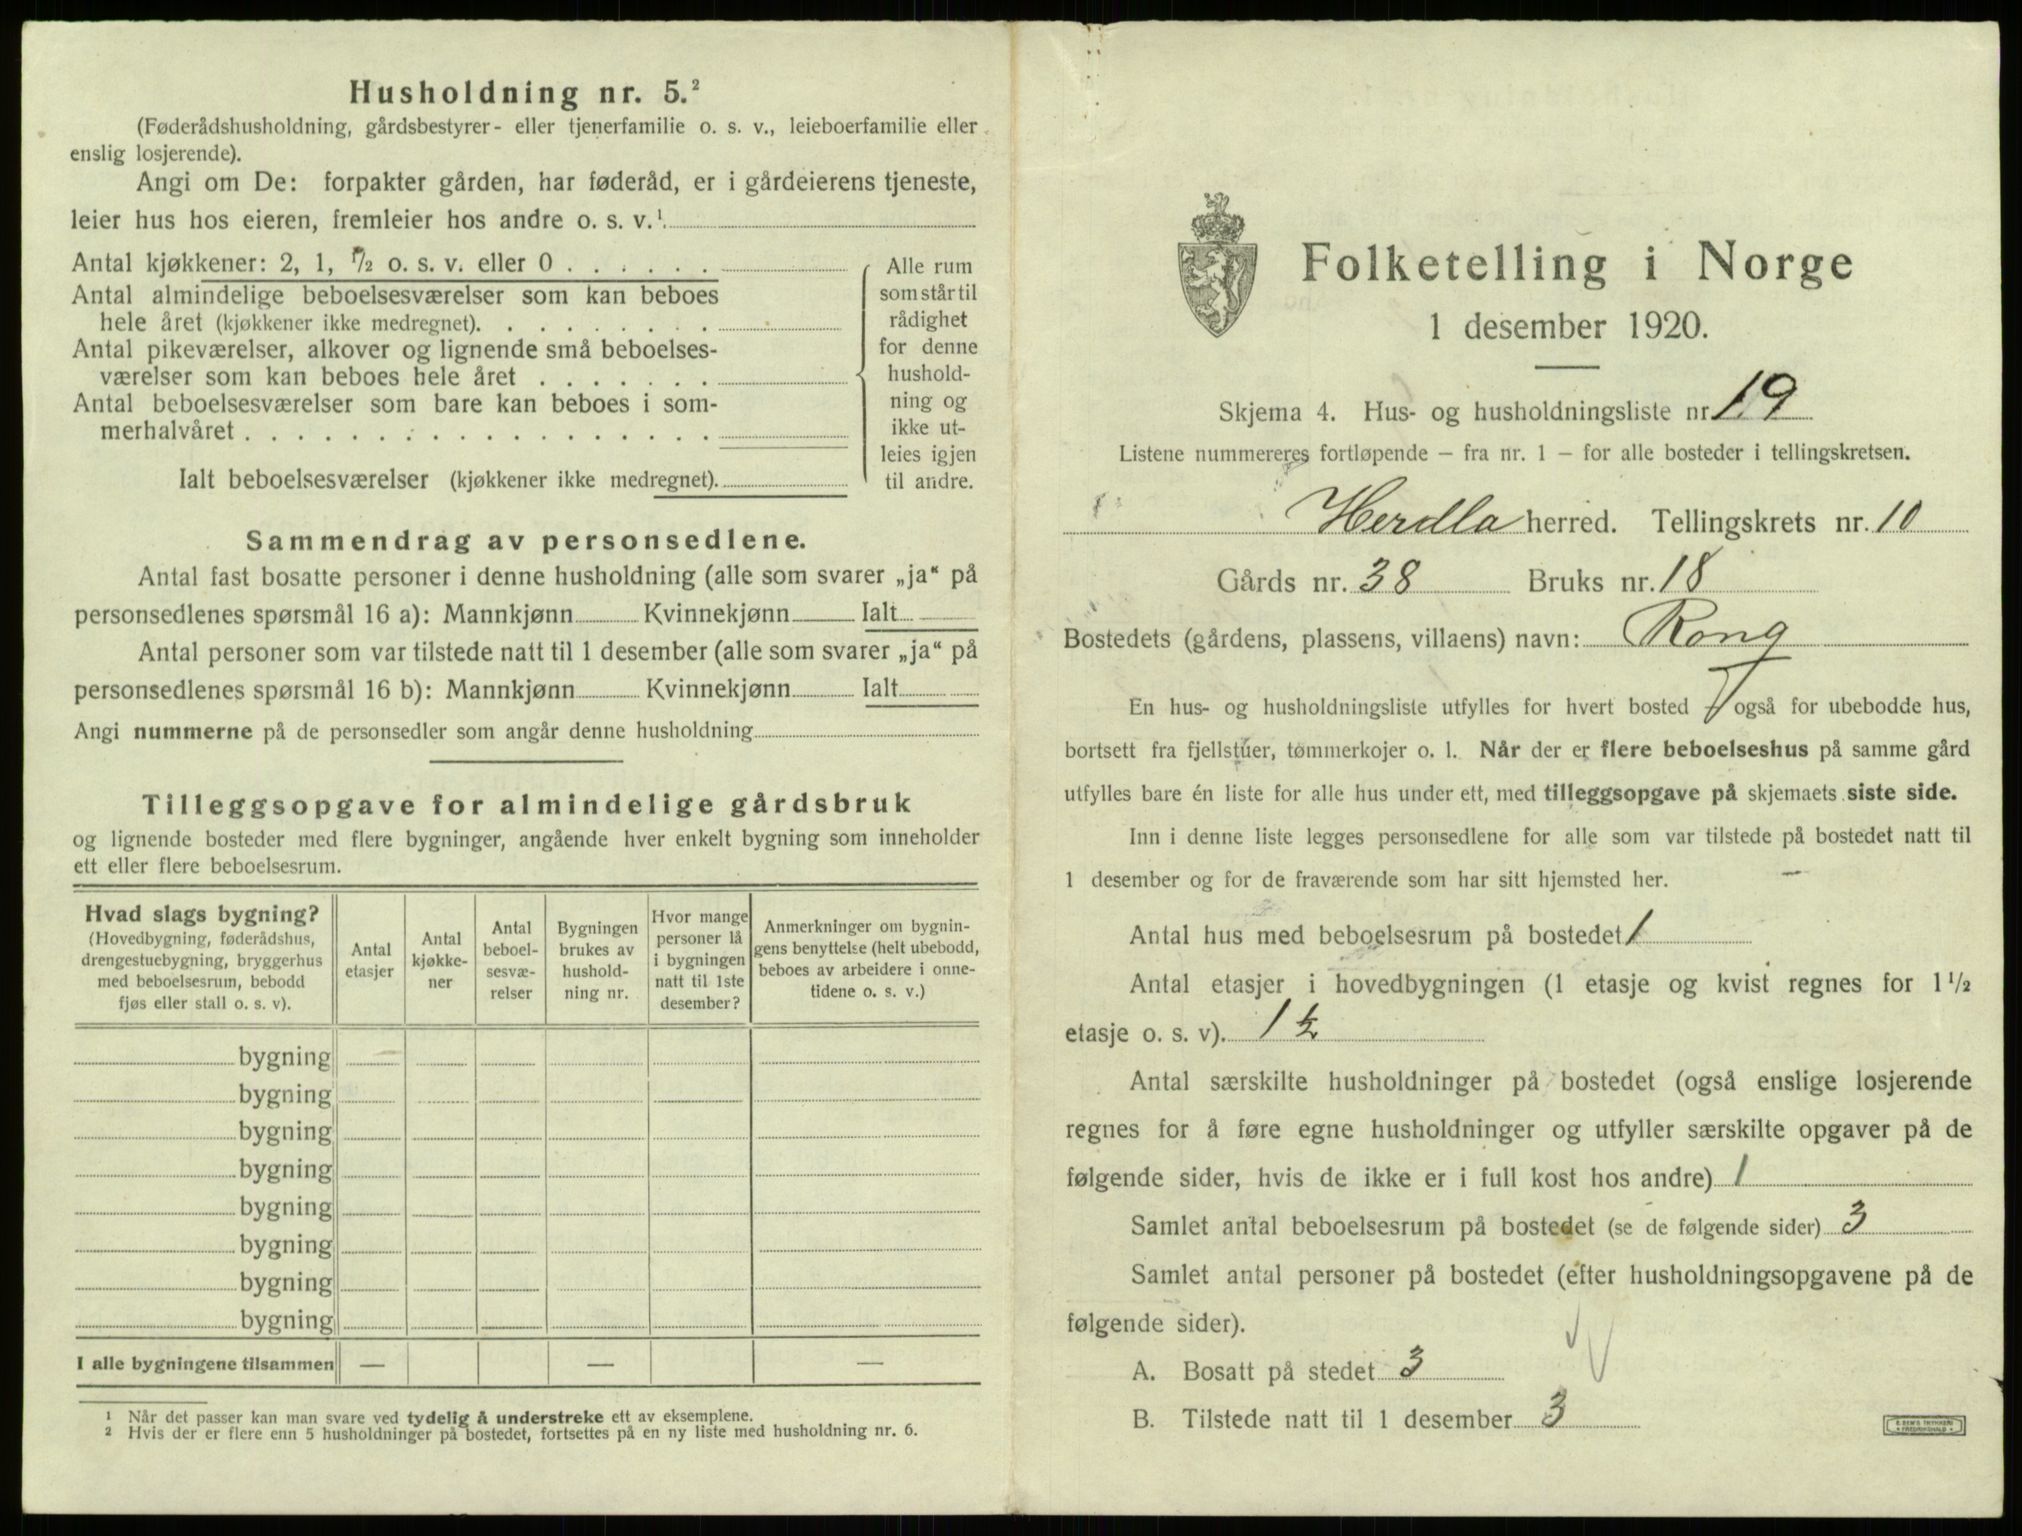 Husholdning nr. 5.²
(Føderådshusholdning, gårdsbestyrer- eller tjenerfamilie o. s. v., leieboerfamilie eller
enslig losjerende).
Angi om De: forpakter gården, har føderåd, er i gårdeierens tjeneste,
leier hus hos eieren, fremleier hos andre o. s. v.¹
Antal kjøkkener: 2, 1, ½ o. s. v. eller 0 . . . . . .
Antal almindelige beboelsesværelser som kan beboes
hele året (kjøkkener ikke medregnet). . . . . . . .
Antal pikeværelser, alkover og lignende små beboelses-
værelser som kan beboes hele året . . . . . . .
Antal beboelsesværelser som bare kan beboes i som-
merhalvåret . . . . . . . . . . . . . . . . . .
Ialt beboelsesværelser (kjøkkener ikke medregnet).
Alle rum
som står til
rådighet
for denne
hushold-
ning og
ikke ut-
leies igjen
til andre.
Sammendrag av personsedlene.
Antal fast bosatte personer i denne husholdning (alle som svarer „ja“ på
personsedlenes spørsmål 16 a): Mannkjønn Kvinnekjønn Ialt
Antal personer som var tilstede natt til 1 desember (alle som svarer „ja“ på
personsedlenes spørsmål 16 b): Mannkjønn Kvinnekjønn Ialt
Angi nummerne på de personsedler som angår denne husholdning
Tilleggsopgave for almindelige gårdsbruk
og lignende bosteder med flere bygninger, angående hver enkelt bygning som inneholder
ett eller flere beboelsesrum.
Hvad slags bygning?
(Hovedbygning, føderådshus,
drengestuebygning, bryggerhus
med beboelsesrum, bebodd
fjøs eller stall o. s. v).
Antal
etasjer
Antal
kjøkke-
ner
Antal
beboel-
sesvæ-
relser
Bygningen
brukes av
hushold-
ning nr.
Hvor mange
personer lå
i bygningen
natt til 1ste
desember?
Anmerkninger om bygnin-
gens benyttelse (helt ubebodd,
beboes av arbeidere i onne-
tidene o. s. v.)
bygning
bygning
bygning
bygning
bygning
bygning
bygning
bygning
I alle bygningene tilsammen — — —
¹ Når det passer kan man svare ved tydelig å understreke ett av eksemplene.
² Hvis der er flere enn 5 husholdninger på bostedet, fortsettes på en ny liste med husholdning nr. 6.
Folketelling i Norge
1 desember 1920.
Skjema 4. Hus- og husholdningsliste nr 19
Listene nummereres fortløpende – fra nr. 1 – for alle bosteder i tellingskretsen.
Herdla herred. Tellingskrets nr. 10
Gårds nr. 38 Bruks nr. 18
Bostedets (gårdens, plassens, villaens) navn: Rong
En hus- og husholdningsliste utfylles for hvert bosted – også for ubebodde hus,
bortsett fra fjellstuer, tømmerkojer o. l. Når der er flere beboelseshus på samme gård
utfylles bare én liste for alle hus under ett, med tilleggsopgave på skjemaets siste side.
Inn i denne liste legges personsedlene for alle som var tilstede på bostedet natt til
1 desember og for de fraværende som har sitt hjemsted her.
Antal hus med beboelsesrum på bostedet 1
Antal etasjer i hovedbygningen (1 etasje og kvist regnes for 1 1/2
etasje o. s. v). 1 ½
Antal særskilte husholdninger på bostedet (også enslige losjerende
regnes for å føre egne husholdninger og utfyller særskilte opgaver på de
følgende sider, hvis de ikke er i full kost hos andre) 1
Samlet antal beboelsesrum på bostedet (se de følgende sider) 3
Samlet antal personer på bostedet (efter husholdningsopgavene på de
følgende sider).
A. Bosatt på stedet 3
B. Tilstede natt til 1 desember 3